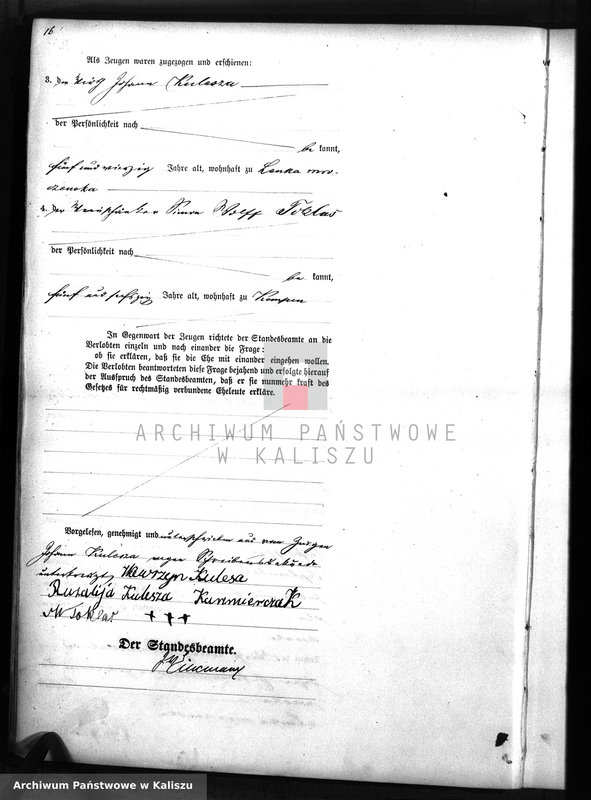 16
Als Zeugen waren zugezogen und erschienen:
3. der Johann Kulesza
der Persönlichkeit nach
be kannt,
fünf und vierzig Jahre alt, wohnhaft zu Lenka mro-
czenska
4. der Wolff Toklas
der Persönlichkeit nach
be kannt,
fünf und sechszig Jahre alt, wohnhaft zu Kempen
In Gegenwart der Zeugen richtete der Standesbeamte an die
Verlobten einzeln und nach einander die Frage:
ob sie erklären, daß sie die Ehe mit einander eingehen wollen.
Die Verlobten beantworteten diese Frage bejahend und erfolgte hierauf
der Ausspruch des Standesbeamten, daß er sie nunmehr kraft des
Gesetzes für rechtmäßig verbundene Eheleute erkläre.
ARCHIWUM PAŃSTWOWE
W KALISZU
Vorgelesen, genehmigt und unterschrieben und vom Zeugen
Johann Kulesza wegen Schreibensunkunde
unterkreuzt Wawrzyn Kulesa
Rusalija Kulesza Kazmierczak
W Toklas +++
Der Standesbeamte.
Archiwum Państwowe w Kaliszu